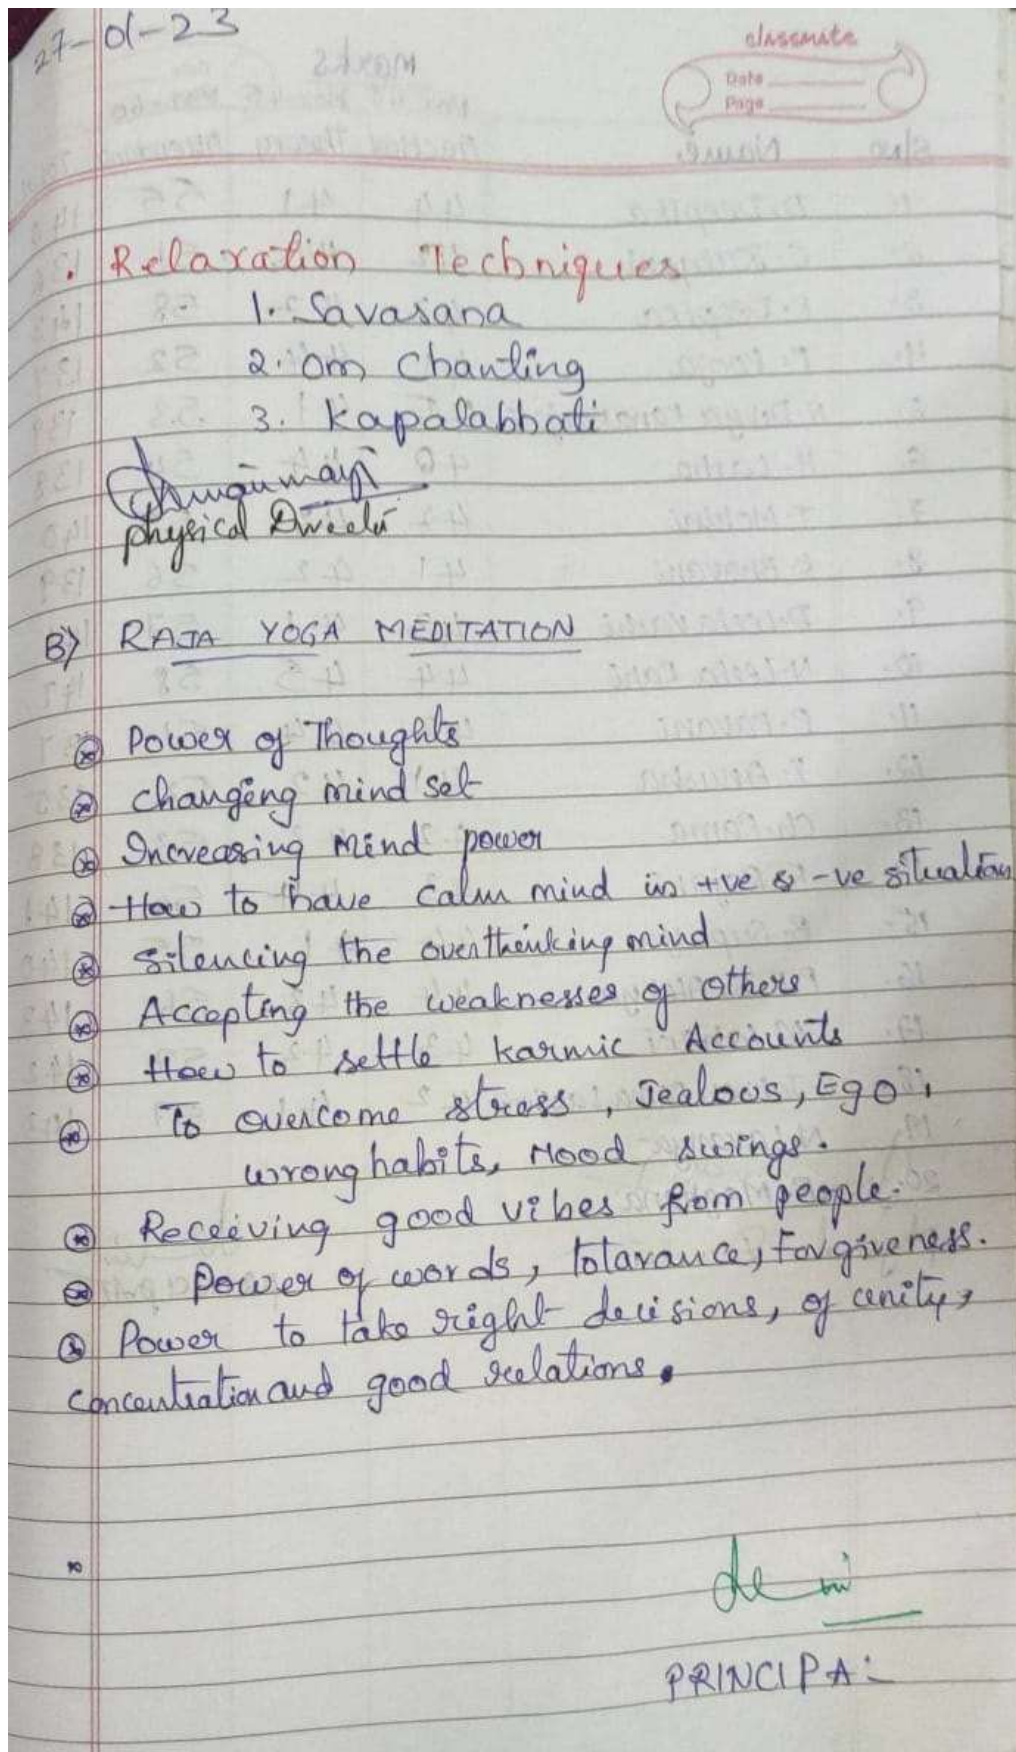 27-01-23
classmate
Date
Page
. Relaxation Techniques
1. Savasana
2. om Chanting
3. Kapalabhati
physical Director
B) RAJA YOGA MEDITATION
Power of Thoughts
changing mind set
Increasing Mind power
How to have calm mind in +ve & -ve situation
silencing the overthinking mind
Accepting the weaknesses of others
How to settle karmic Accounts
To overcome stress, Jealous, Ego,
wrong habits, Mood swings.
Receiving good vibes from people.
Power of words, tolarance, Forgiveness.
Power to take right decisions, of unity,
concentration and good relations.
PRINCIPAL